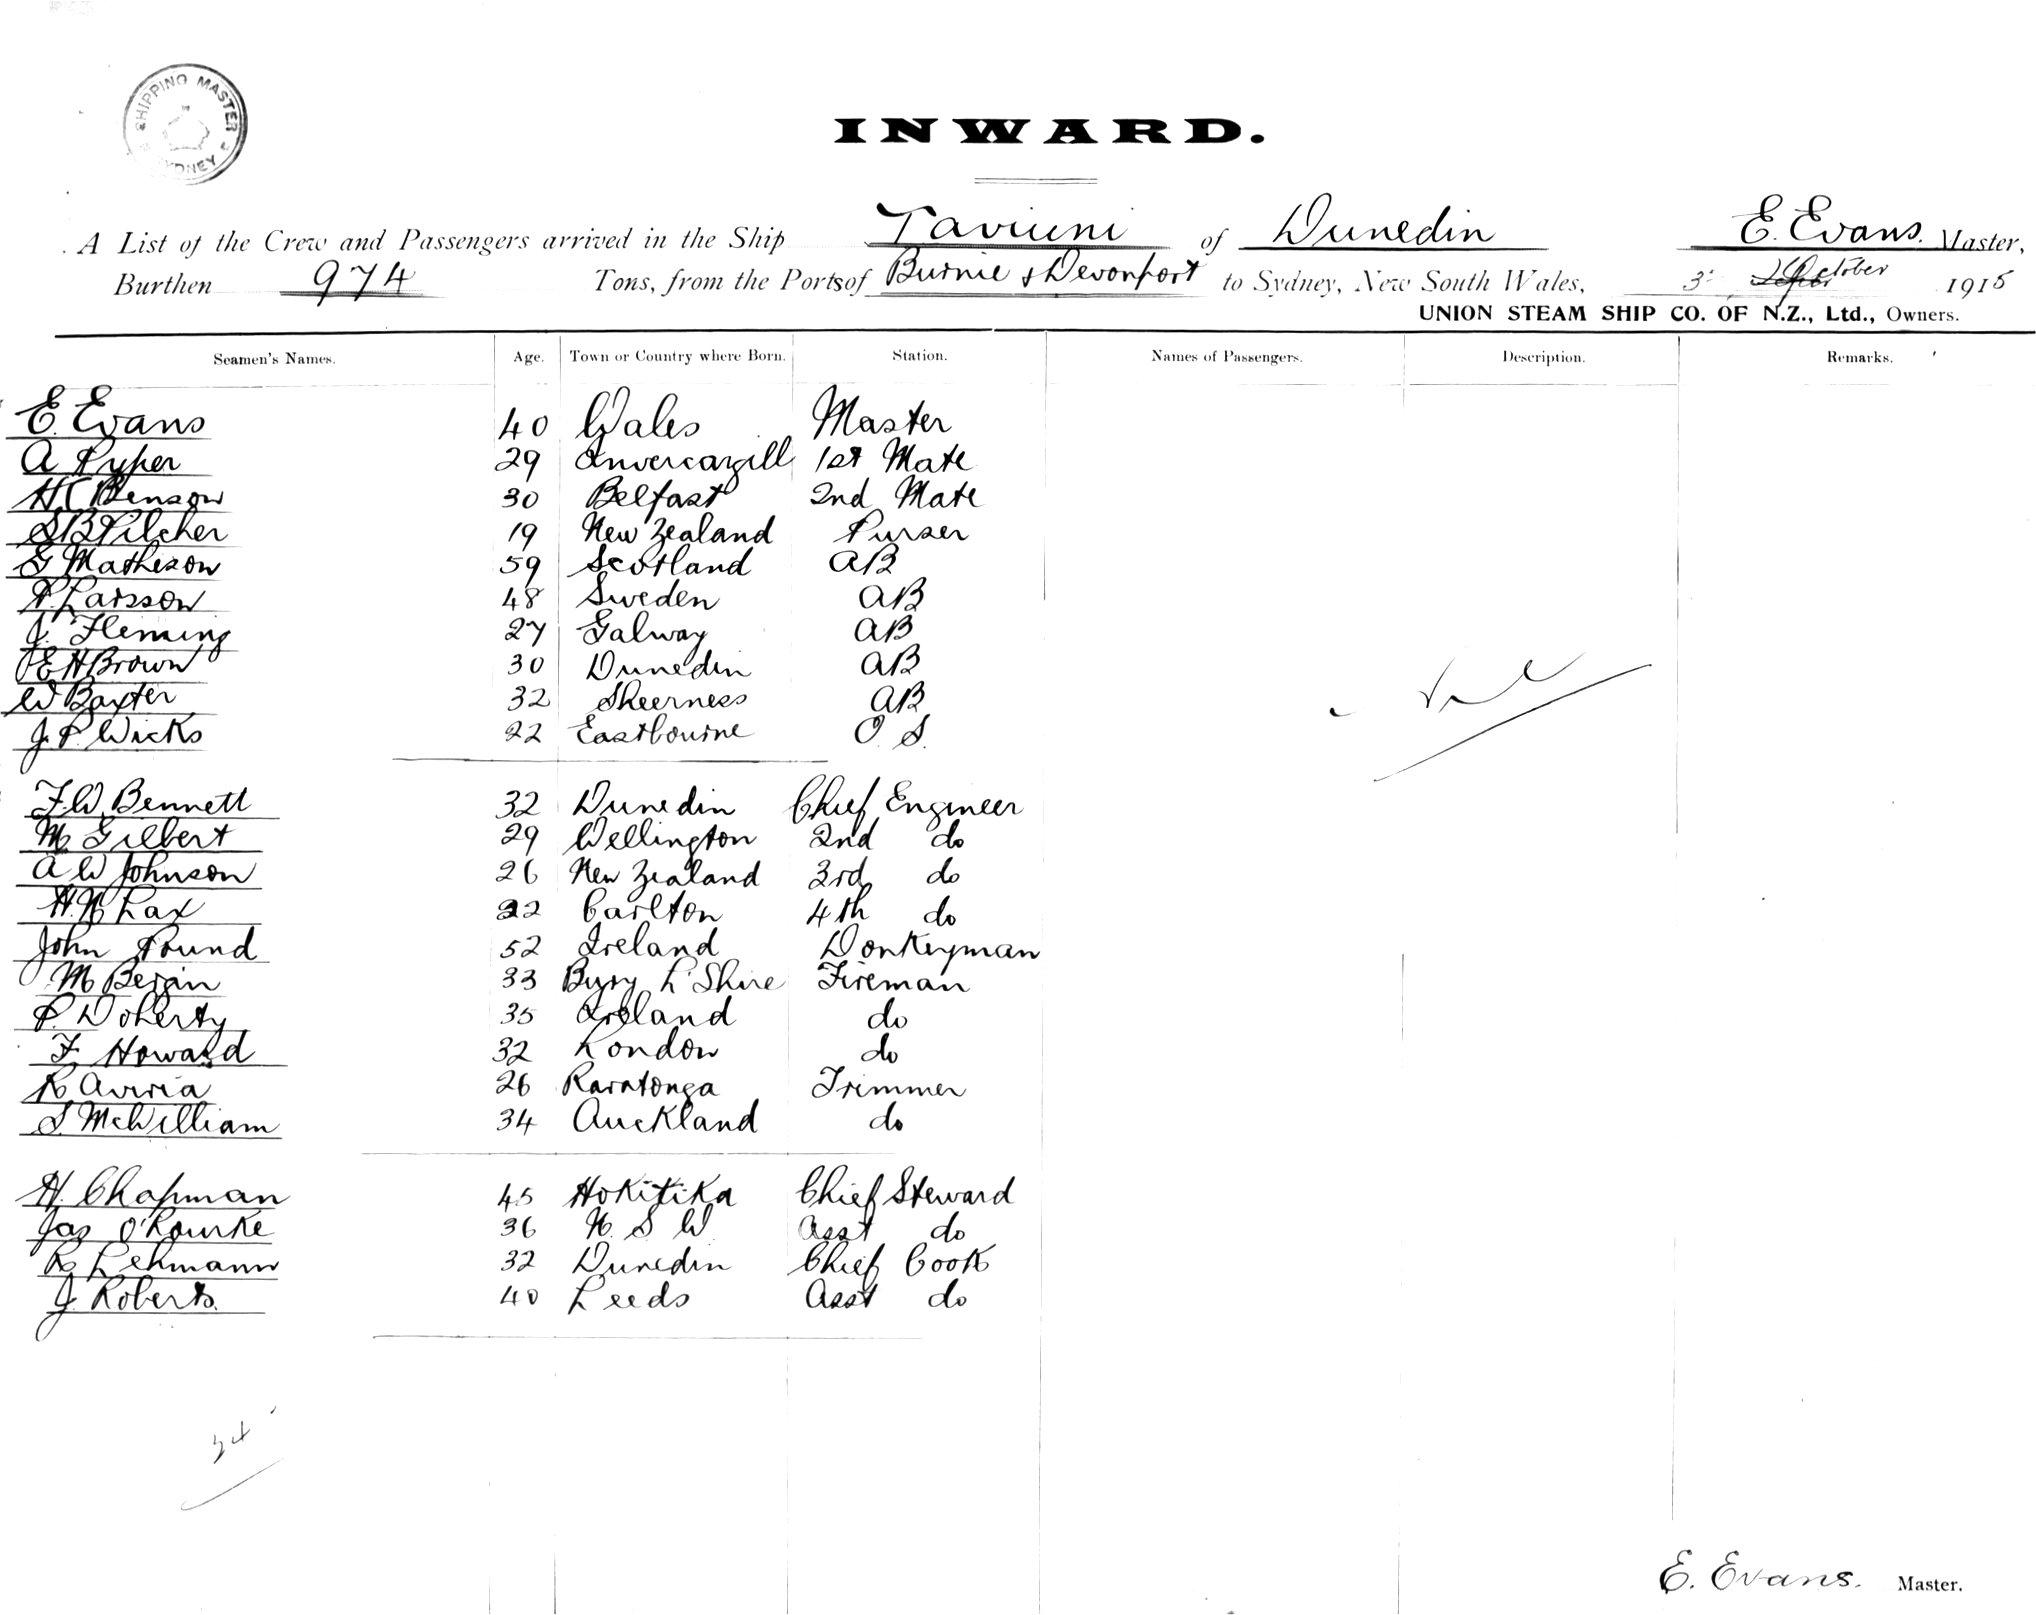 SHIPPING MASTER SYDNEY
INWARD.
A List of the Crew and Passengers arrived in the Ship Taviuni of Dunedin E. Evans. Master,
Burthen 974 Tons, from the Ports of Burnie & Devonport to Sydney, New South Wales, 3 October 1915
UNION STEAM SHIP CO. OF N.Z., Ltd., Owners.
Seamen's Names. Age. Town or Country where Born. Station. Names of Passengers. Description. Remarks.
E. Evans 40 Wales Master
A Pyper 29 Invercargill 1st Mate
H C Benson 30 Belfast 2nd Mate
S B Pilcher 19 New Zealand Purser
G Matheson 59 Scotland AB
P. Larsson 48 Sweden AB
J. Fleming 27 Galway AB
E H Brown 30 Dunedin AB
W Baxter 32 Sheerness AB
J. P. Wicks 22 Eastbourne O. S.
F. W. Bennett 32 Dunedin Chief Engineer
M Gilbert 29 Wellington 2nd do
A W Johnson 26 New Zealand 3rd do
H. N Lax 22 Carlton 4th do
John Pound 52 Ireland Donkeyman
M Bergin 33 Bury L'Shire Fireman
P. Doherty 35 Ireland do
F. Howard 32 London do
R Aviria 26 Raratonga Trimmer
S McWilliam 34 Auckland do
H. Chapman 45 Hokitika Chief Steward
Jas O'Rourke 36 N. S W Asst do
R Lehmann 32 Dunedin Chief Cook
J. Roberts. 40 Leeds Asst do
24
E. Evans. Master.